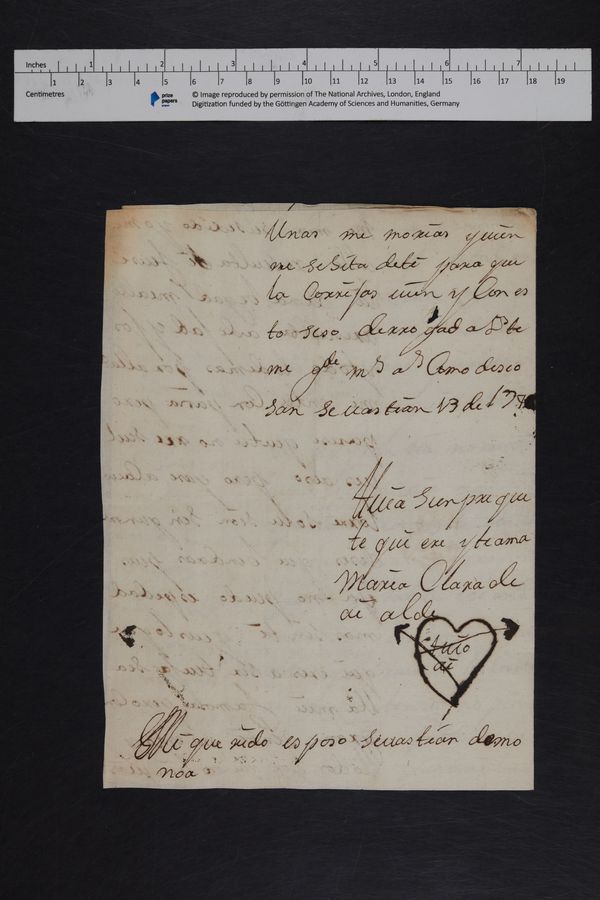 Inches 1 2 3 4 5 6 7
1 2 3 4 5 6 7 8 9 10 11 12 13 14 15 16 17 18 19
Centimetres
prize papers
© Image reproduced by permission of The National Archives, London, England
Digitization funded by the Göttingen Academy of Sciences and Humanities, Germany
Unas me morias quien
ne sesita deti para que
la Corrijas uien y Con es
to seso derro gad a Ds te
me gde ms as Como deseo
San Seuastian 13 de
tuia sienpre que
te qui ere y te ama
Maria Clara de
ai alde
tuio
ai
Mi que rido esposo Seuastian demo
noa